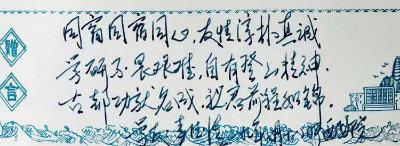 赠言
同窗同宿同心,友情淳朴真诚
学研不畏艰难,自有登山精神.
古都功就名成,祝君前程如锦.
学友